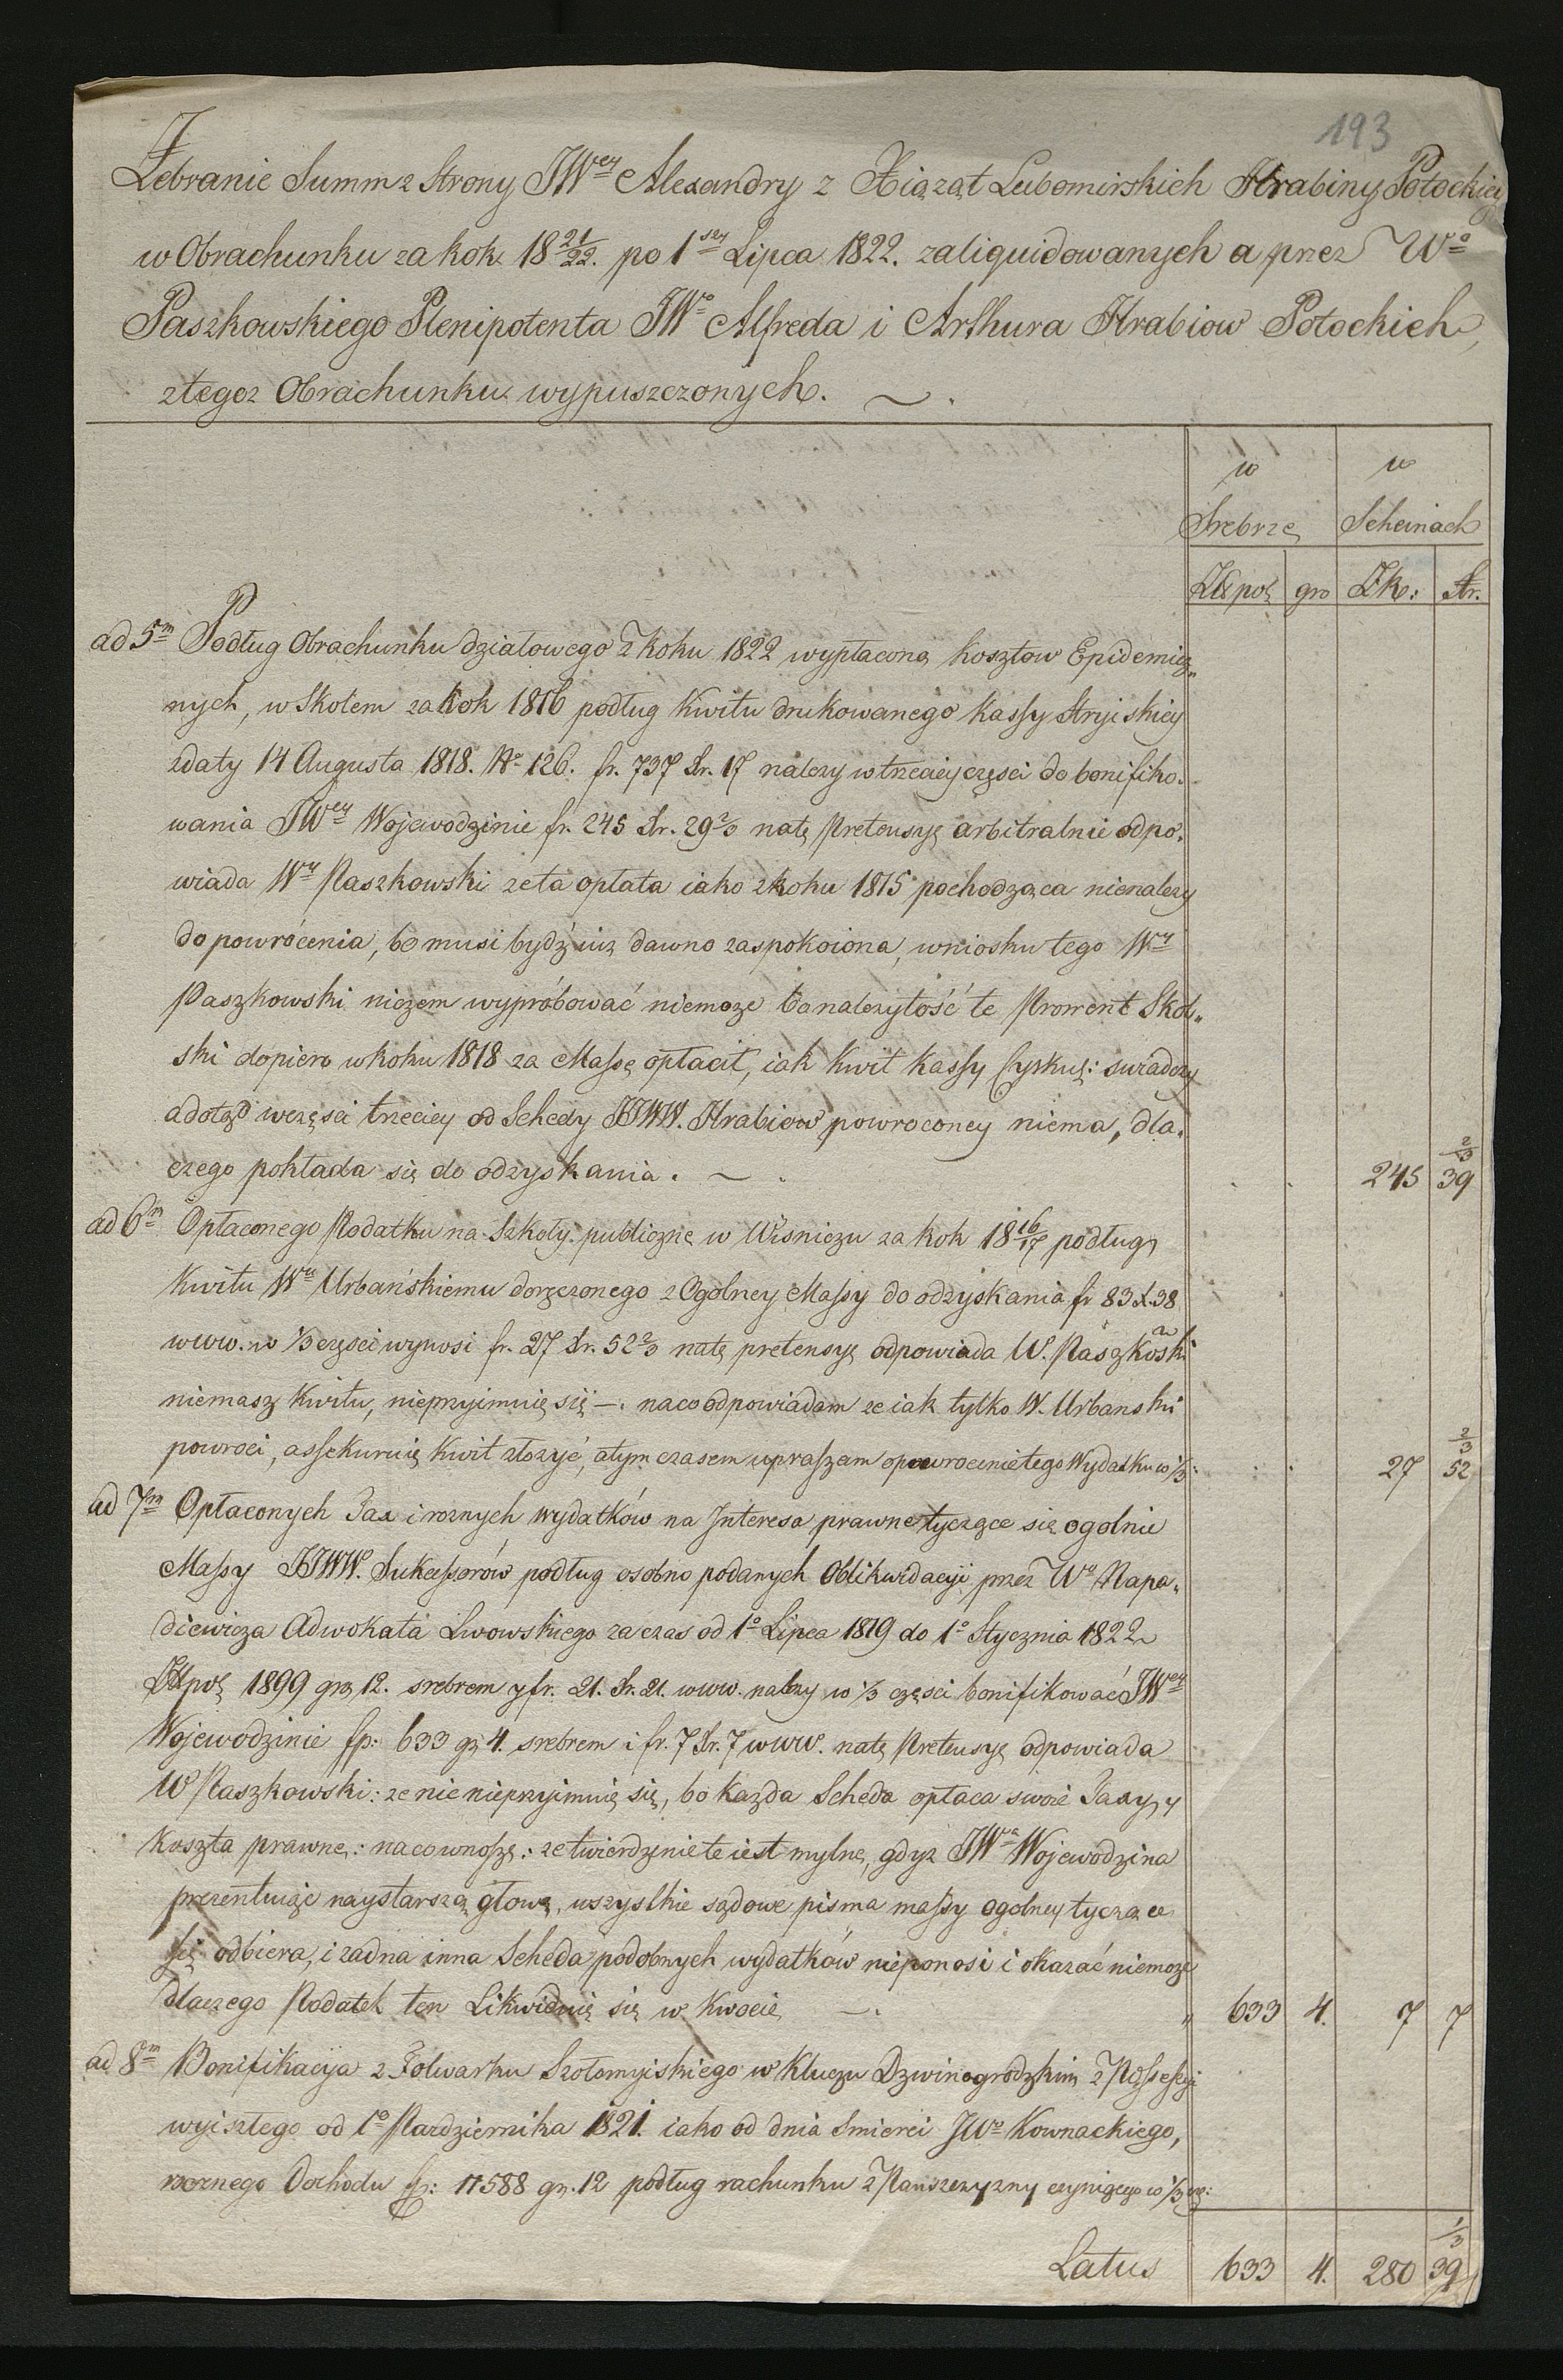 193
Zebranie Summ z Strony JWey Alexandry z Xiążąt Lubomirskich Hrabiny Potockiey
w Obrachunku za Rok 18 21/22. po 1szy Lipca 1822. zaliquidowanych a przez Wo
Paszkowskiego Plenipotenta JWo Alfreda i Arthura Hrabiow Potockich,
z tegoz Obrachunku wypuszczonych. —.
w w
Srebrze Scheinach
ZŁpol gro ZR: Xr.
ad 5m Podług Obrachunku działowego z Roku 1822 wypłacone kosztow Epidemicz„
nych, w Skolem za Rok 1816 podług Kwitu drukowanego Kassy Stryiskiey
zdaty 14 Augusta 1818. No 126. fr. 737 Xr. 17 nalezy w trzeciey częsci do bonifiko„
wania JWey Wojewodzinie fr. 245 Xr. 29 2/3 natę Pretensyę arbitralnie odpo„
wiada Wy Paszkowski ze ta opłata iako z Roku 1815 pochodząca nienalezy
do powrócenia, bo musi bydź iuz dawno zaspokoiona, wniosku tego Wy
Paszkowski niczem wypróbować niemoze bo nalezytość te Prowent Skol„
ski dopiero w Roku 1818 za Massę opłacił, iak Kwit Kassy Cyrkuł: swiadczy
a dotąd w częsci trzeciey od Schedy JJWW. Hrabiow powroconey niema, dla„
czego pokłada się do odzyskania. — . . . 245 39 2/3
ad 6m Opłaconego Podatku na Szkoły publiczne w Wisniczu za Rok 18 16/17 podług
Kwitu Wu Urbańskiemu doręczonego z Ogolney Massy do odzyskania fr 83 X. 38
w ww. w 1/3 częsci wynosi fr. 27 Xr. 52 2/3 natę pretensyę odpowiada W. Paszkowski
niemasz Kwitu, nieprzyimuię się —. naco odpowiadam ze iak tylko W. Urbanski
powroci, assekuruię Kwit złozyć, a tym czasem upraszam o powrocenie tego Wydatku w 1/3 . . 27 52 2/3
ad 7m Opłaconych Tax i roznych wydatków na Interesa prawne tyczące się ogolnie
Massy JJWW. Sukcessorów podług osobno podanych Oblikwidacyi przez Wo Napa„
diewicza Adwokata Lwowskiego za czas od 1o Lipca 1819 do 1o Stycznia 1822
ZŁpol 1899 gr 12. srebrem y fr. 21. Xr. 21. w ww. nalezy w 1/3 częsci bonifikować JWey
Wojewodzinie fp: 633 gr 4. srebrem i fr. 7 Xr. 7 w ww. natę Pretensyę odpowiada
W Paszkowski: ze nie nieprzyimuię się, bo kazda Scheda opłaca swoie Taxy, y
Koszta prawne: naco wnoszę: ze twierdzenie te iest mylne, gdyz JWa Wojewodzina
prezentuiąc naystarszą głowę, wszystkie sądowe pisma massy ogolney tyczące
się odbiera, i zadna inna Scheda podobnych wydatków nieponosi i okazać niemoze
dlaczego Podatek ten Likwiduię się w Kwocie —. „ 633 4. 7 7
ad 8m Bonifikacya z Folwarku Szołomyiskiego w Kluczu Dzwinogrodzkim z Possessyi
wyiszłego od 1o Pazdziernika 1821. iako od dnia Smierci JWo Kownackiego,
rocznego Dochodu fp: 11588 gr. 12 podług rachunku z Panszczyzny czyniącego w 1/3 czę:
Latus 633 4. 280 39 1/3